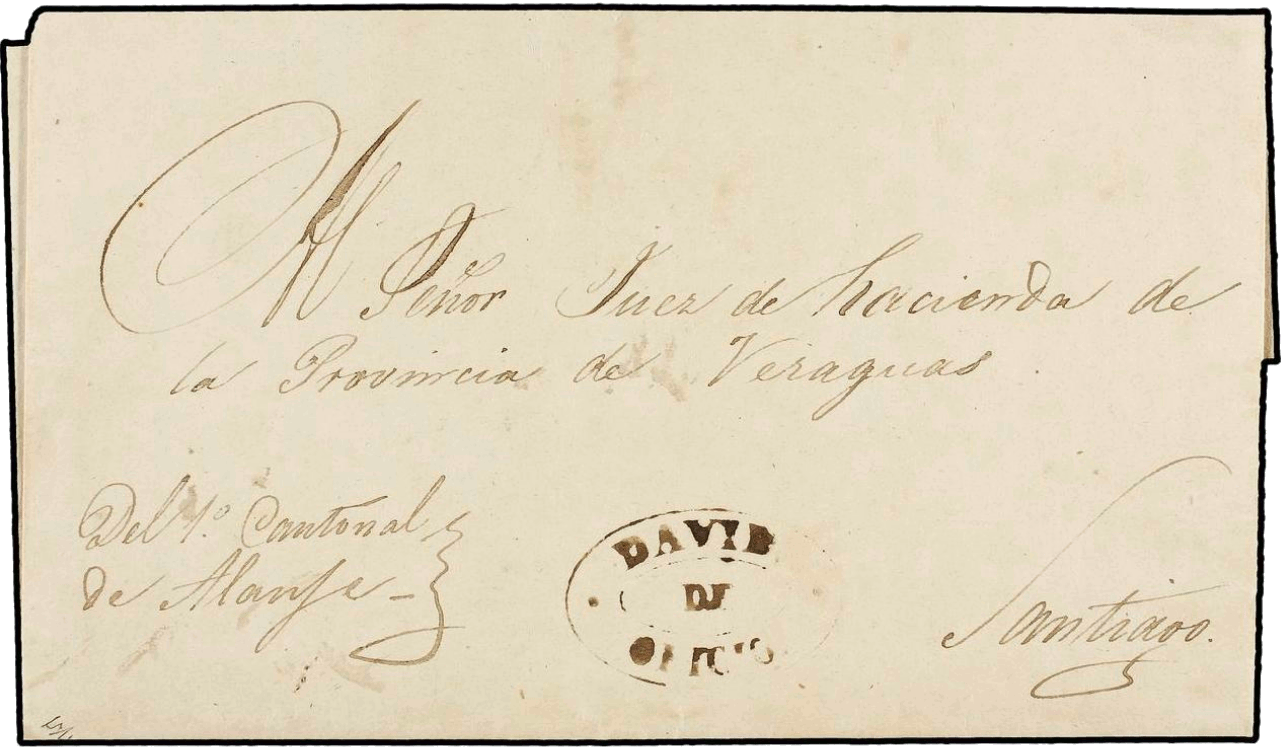 Al Señor Juez de hacienda de
la Provincia de Veraguas
Del 1.º Cantonal
de Alanje
DAVID
DE
OFICIO
Santiago.